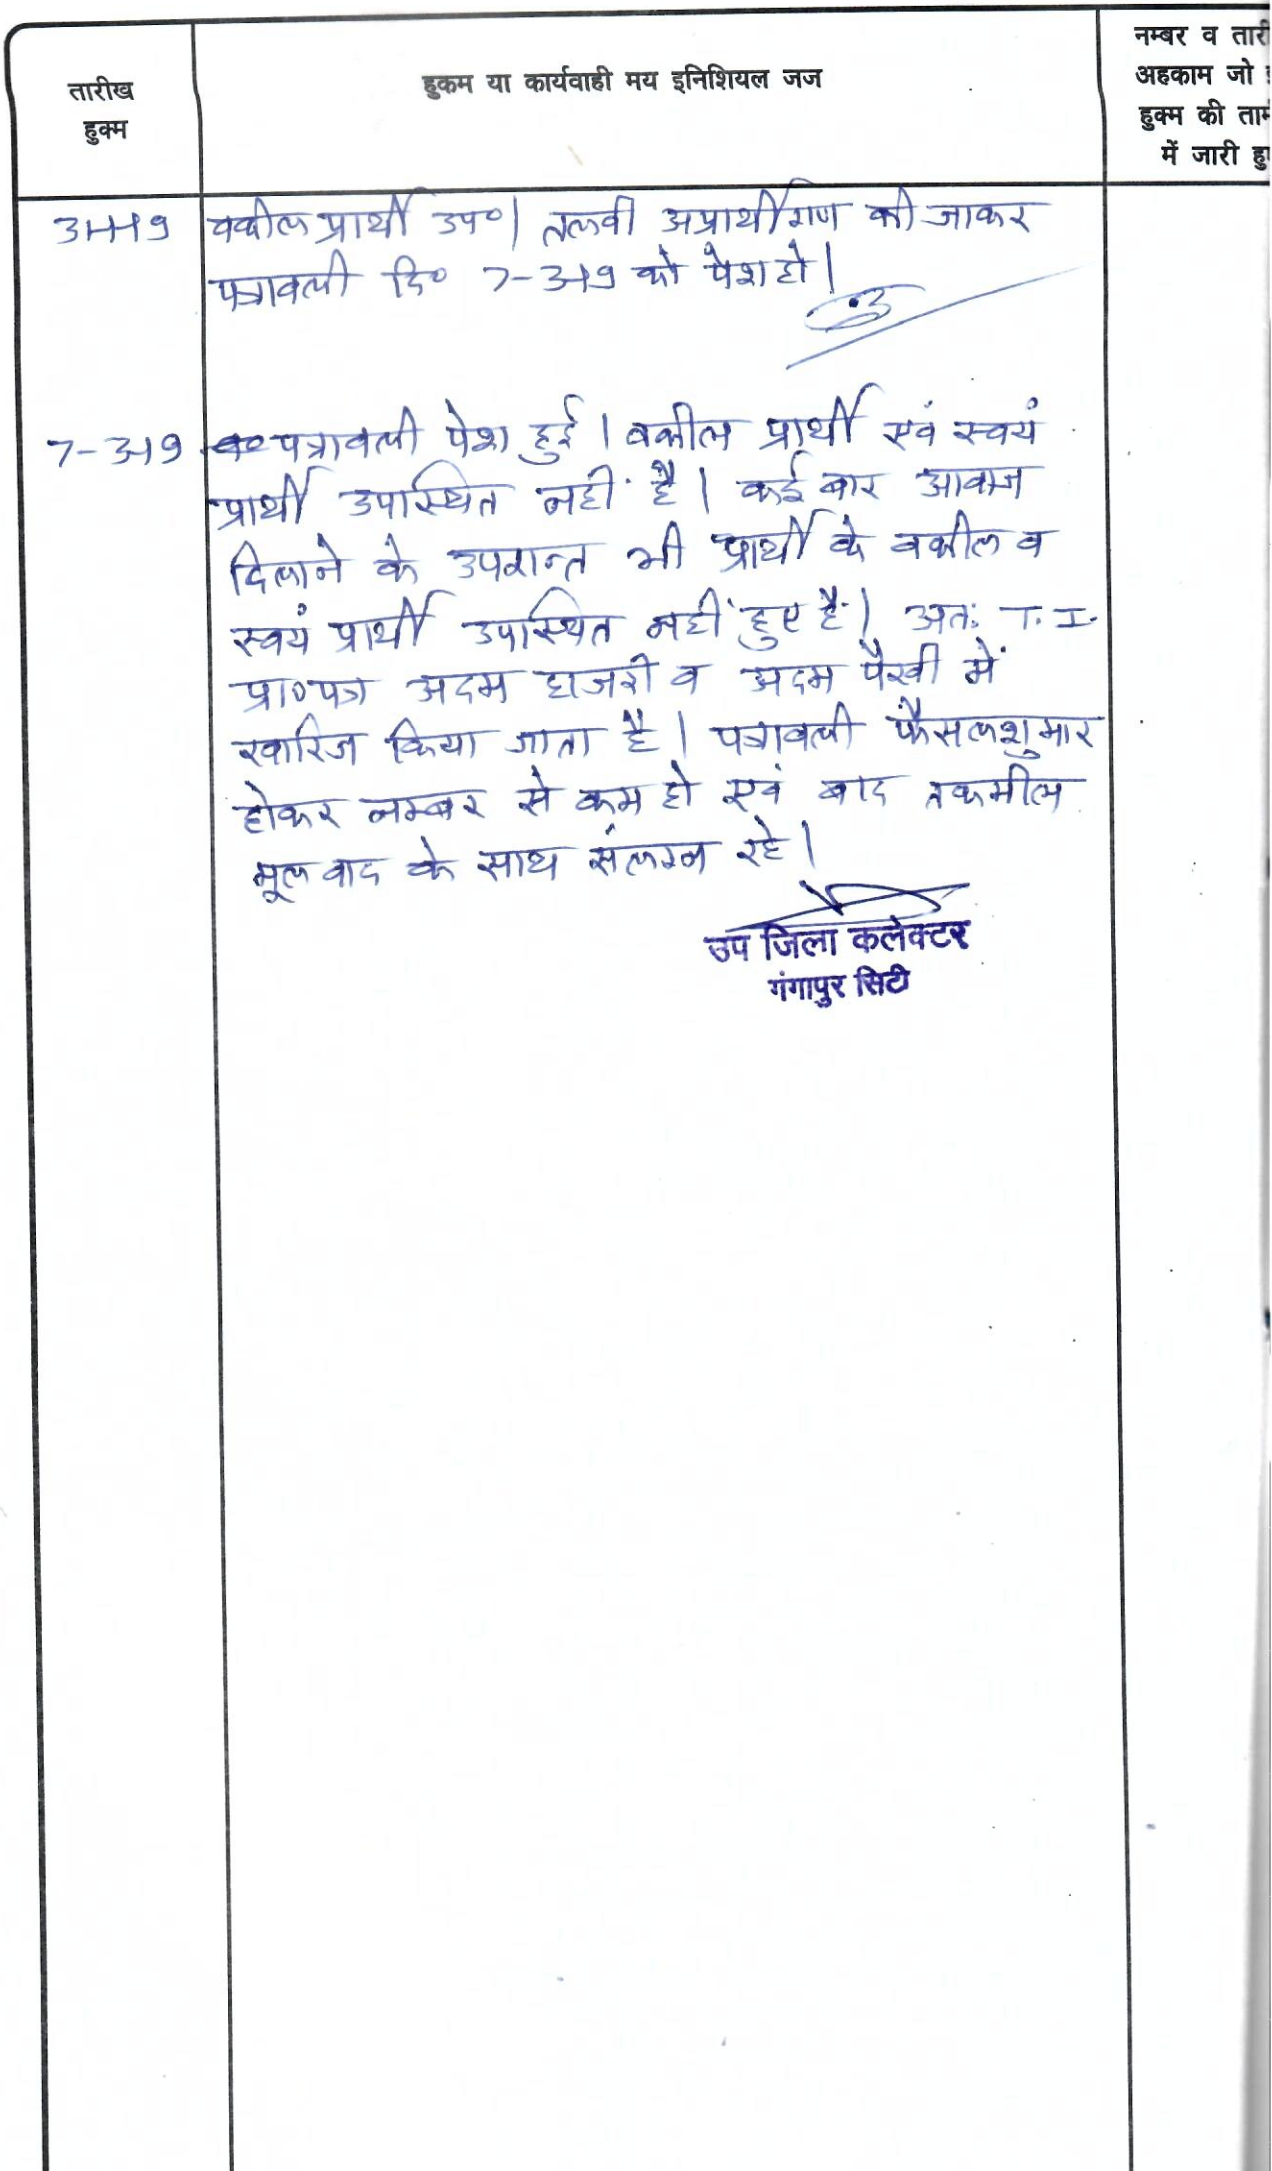 तारीख
हुक्म
हुकम या कार्यवाही मय इनिशियल जज
नम्बर व तारी
अहकाम जो इ
हुक्म की ताम
में जारी हु
वकील प्रार्थी उप० । तलवी अप्रार्थीगण की जाकर
पत्रावली दि० 7-3-19 को पेश हो ।
7-3-19 पत्रावली पेश हुई । वकील प्रार्थी एवं स्वयं
प्रार्थी उपास्थित नहीं है । कई बार आवाज
दिलाने के उपरान्त भी प्रार्थी के वकील व
स्वयं प्रार्थी उपास्थित नहीं हुए है । अतः T. I.
प्रा०पत्र अदम हाजरी व अदम पैरवी में
खारिज किया जाता है । पत्रावली फैसलशुमार
होकर नम्बर से कम हो एवं बाद तकमील
मूल वाद के साथ संलग्न रहे ।
उप जिला कलेक्टर
गंगापुर सिटी